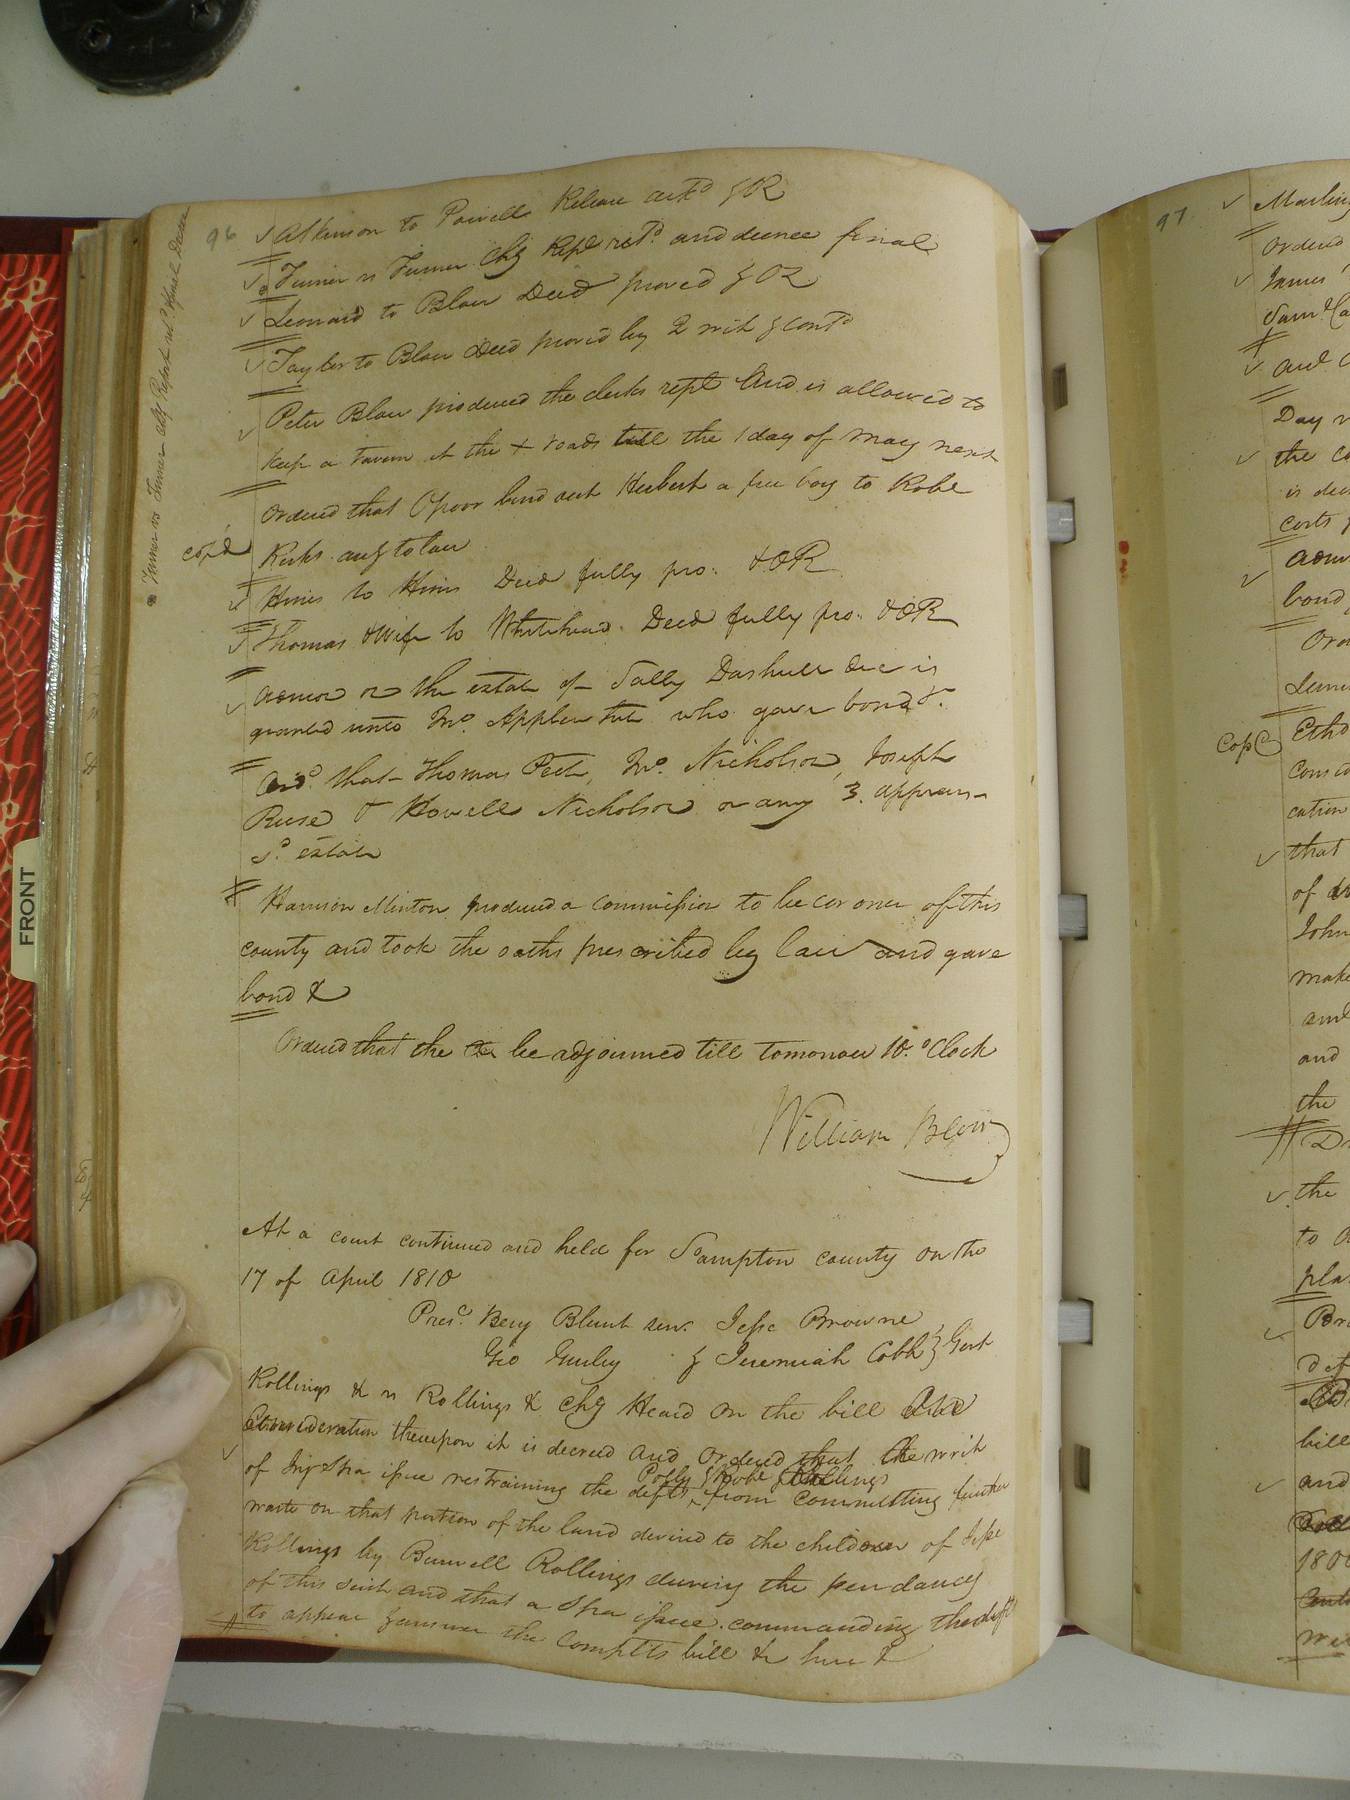 96
Atkinson to Powell Release ackd & OR
Turner vs Turner Chy Rept retd and decree final
Leonard to Blow Deed proved & OR
Taylor to Blow Deed proved by 2 wit & contd
Peter Blow produced the clerks rept And is allowed to
keep a tavern at the + roads till the 1 day of May next
Ordered that O poor bind out Herbert a free boy to Robt
Ricks acg to law
copd
Hines to Hines Deed fully pro: & OR
Thomas & Wife to Whitehead. Deed fully pro: & OR
Admon on the estate of Sally Dashiell Dec is
granted unto Jno. Applewhite who gave bond &.
Ord. that Thomas Pete, Jno. Nicholson, Joseph
Ruse & Howell Nicholson or any 3. apprais-
sd. estate
Harrison Minton produced a commission to be coroner of this
county and took the oaths prescribed by law and gave
bond &
Ordered that the Ct be adjourned till tomorrow 10. oClock
William Blow
At a court continued and held for Sompton county on the
17 of April 1810
Prest. Benj Blunt senr. Jesse Browne
Geo Gurley & Jeremiah Cobb } Gent
Rollings & vs Rollings & Chy Heard on the bill And
Consideration thereupon it is decreed and Ordered that the writ
Polly & Robt Rollings
of Inj & Spa issue restraining the defts from committing further
waste on that portion of the land devised to the children of Jesse
Rollings by Burwell Rollings during the pendancy
of this suit and that a Spa issue commanding the defts
to appear & answer the complts bill & here &
Turner vs Turner Chy Report retd & final Decree
FRONT
97
Ordered
James
and
Day
the
is
costs
bond
Copd
that
of
John
make
and
the
the
to
bill
and